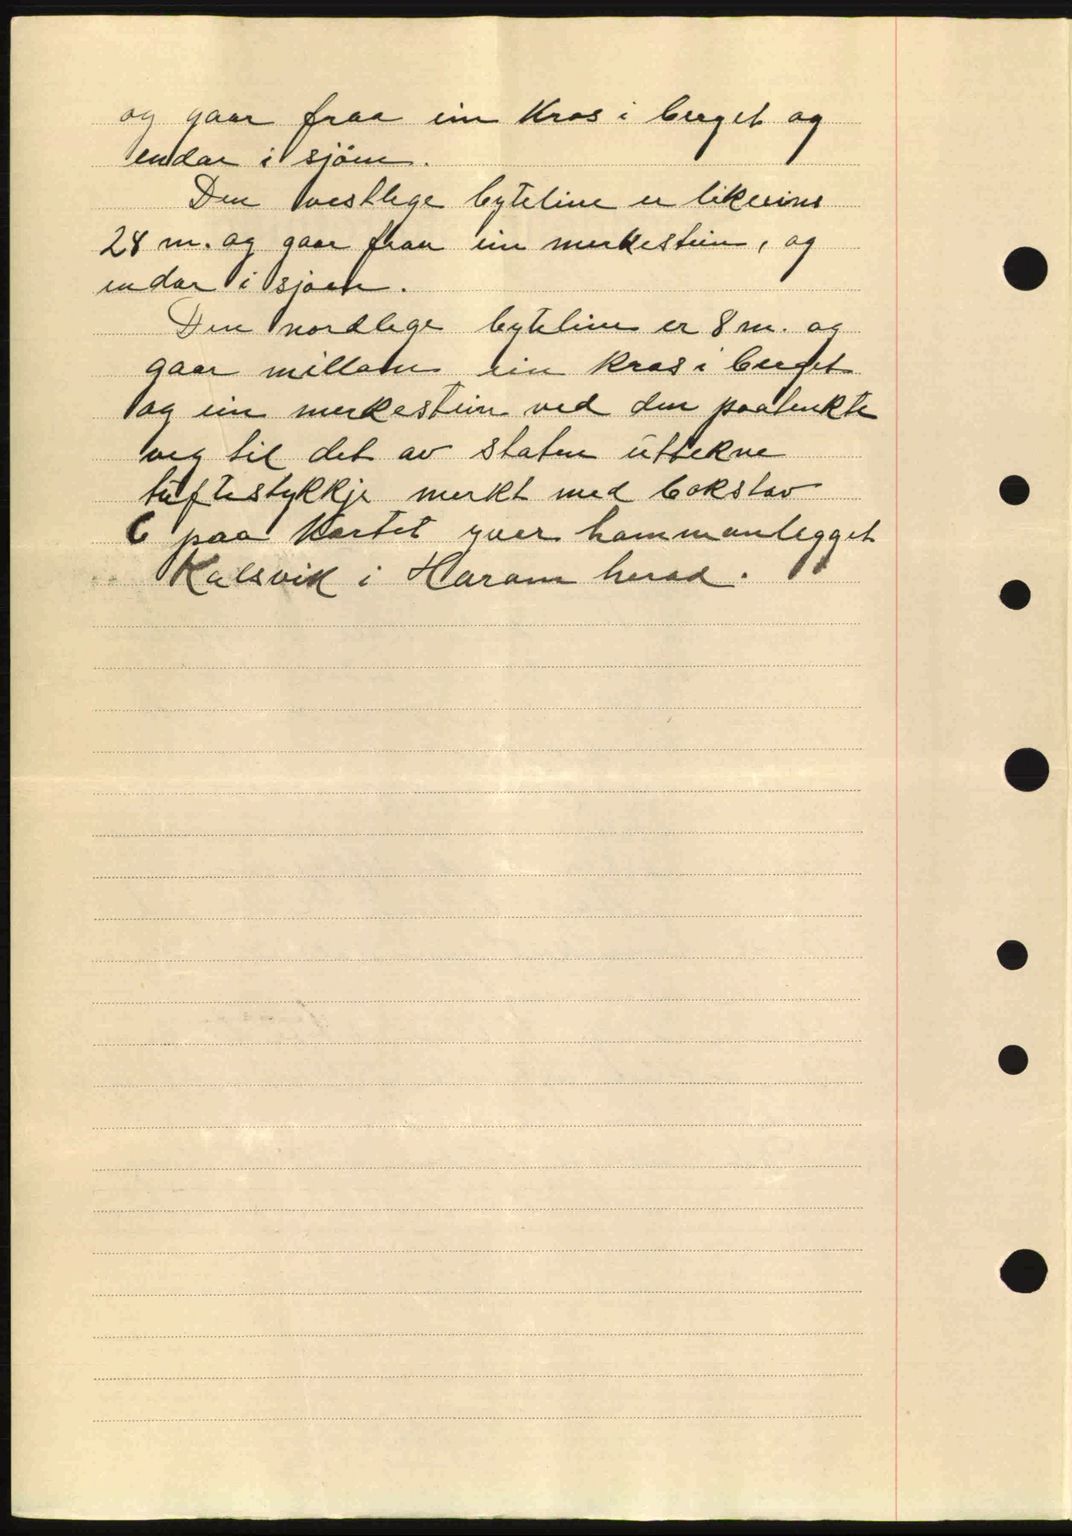 og gaar fraa ein kros i berget og
endar i sjöen.
Den vestlege byteline er likeeins
28 m. og gaar fraa ein merkestein, og
endar i sjøen.
Den nordlege byteline er 8 m. og
gaar millom ein kros i berget
og ein merkestein ved den paatenkte
veg til det av staten uttekne
tuftestykkje merkt med bokstav
C paa kartet yver hammanlegget
Kalsvik i Haram herad.